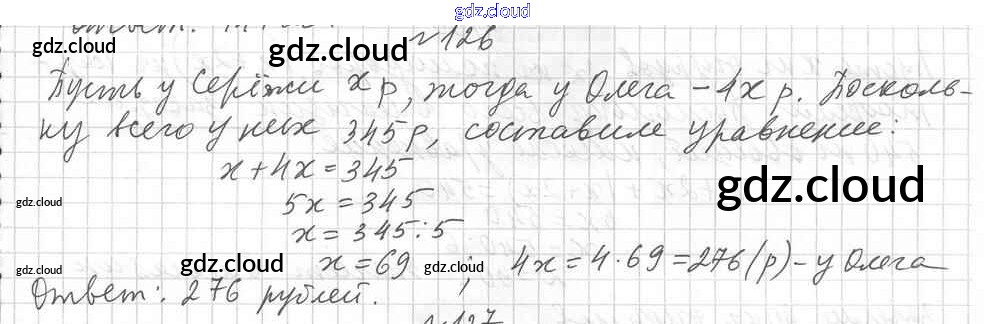 gdz.cloud
Ответ:
№126
gdz.cloud gdz.cloud
Пусть у Серёжи x р, тогда у Олега – 4x р. Посколь-
ку всего у них 345 р, составим уравнение:
x + 4x = 345
gdz.cloud
gdz.cloud 5x = 345
x = 345 : 5
gdz.cloud gdz.cloud x = 69 gdz.cloud ; 4x = 4 · 69 = 276 (р) – у Олега
Ответ: 276 рублей.
№127